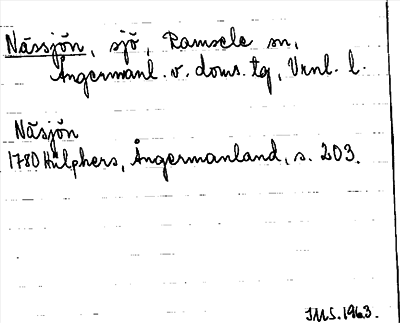 Nässjön, sjö, Ramsele sn,
Ångermanl. v. doms. tg, Vrnl. l.
Näsjön
1780 Hülphers, Ångermanland, s. 203.
JMS. 1963.